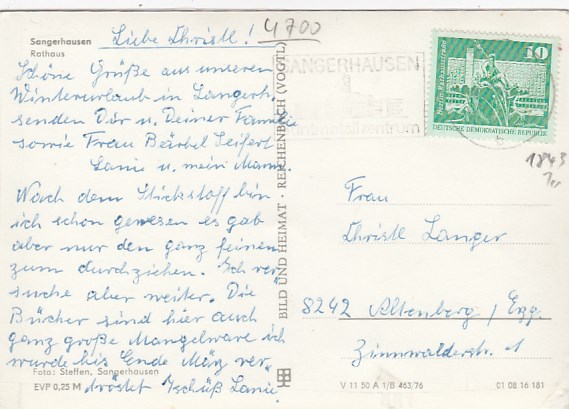 Sangerhausen
Rathaus
Liebe Christl!
4700
Schöne Grüße aus unserem
Winterurlaub in Sangerh.
senden Dir u. Deiner Familie
sowie Frau Bärbel Seifert
u. mein Mann
Nach dem Stickstoff bin
ich schon gewesen es gab
aber nur den ganz feinen
zum durchziehen. Ich ver-
suche aber weiter. Die
Bücher sind hier auch
ganz große Mangelware ich
wurde bis Ende März ver-
tröstet Tschüß
Foto: Steffen, Sangerhausen
EVP 0,25 M
BILD UND HEIMAT · REICHENBACH (VOGTL)
SANGERHAUSEN
10
DEUTSCHE DEMOKRATISCHE REPUBLIK
1843
Frau
Christl Langer
8242 Altenberg / Erzg.
Zinnwalderstr. 1
V 11 50 A 1/B 463/76
01 08 16 181